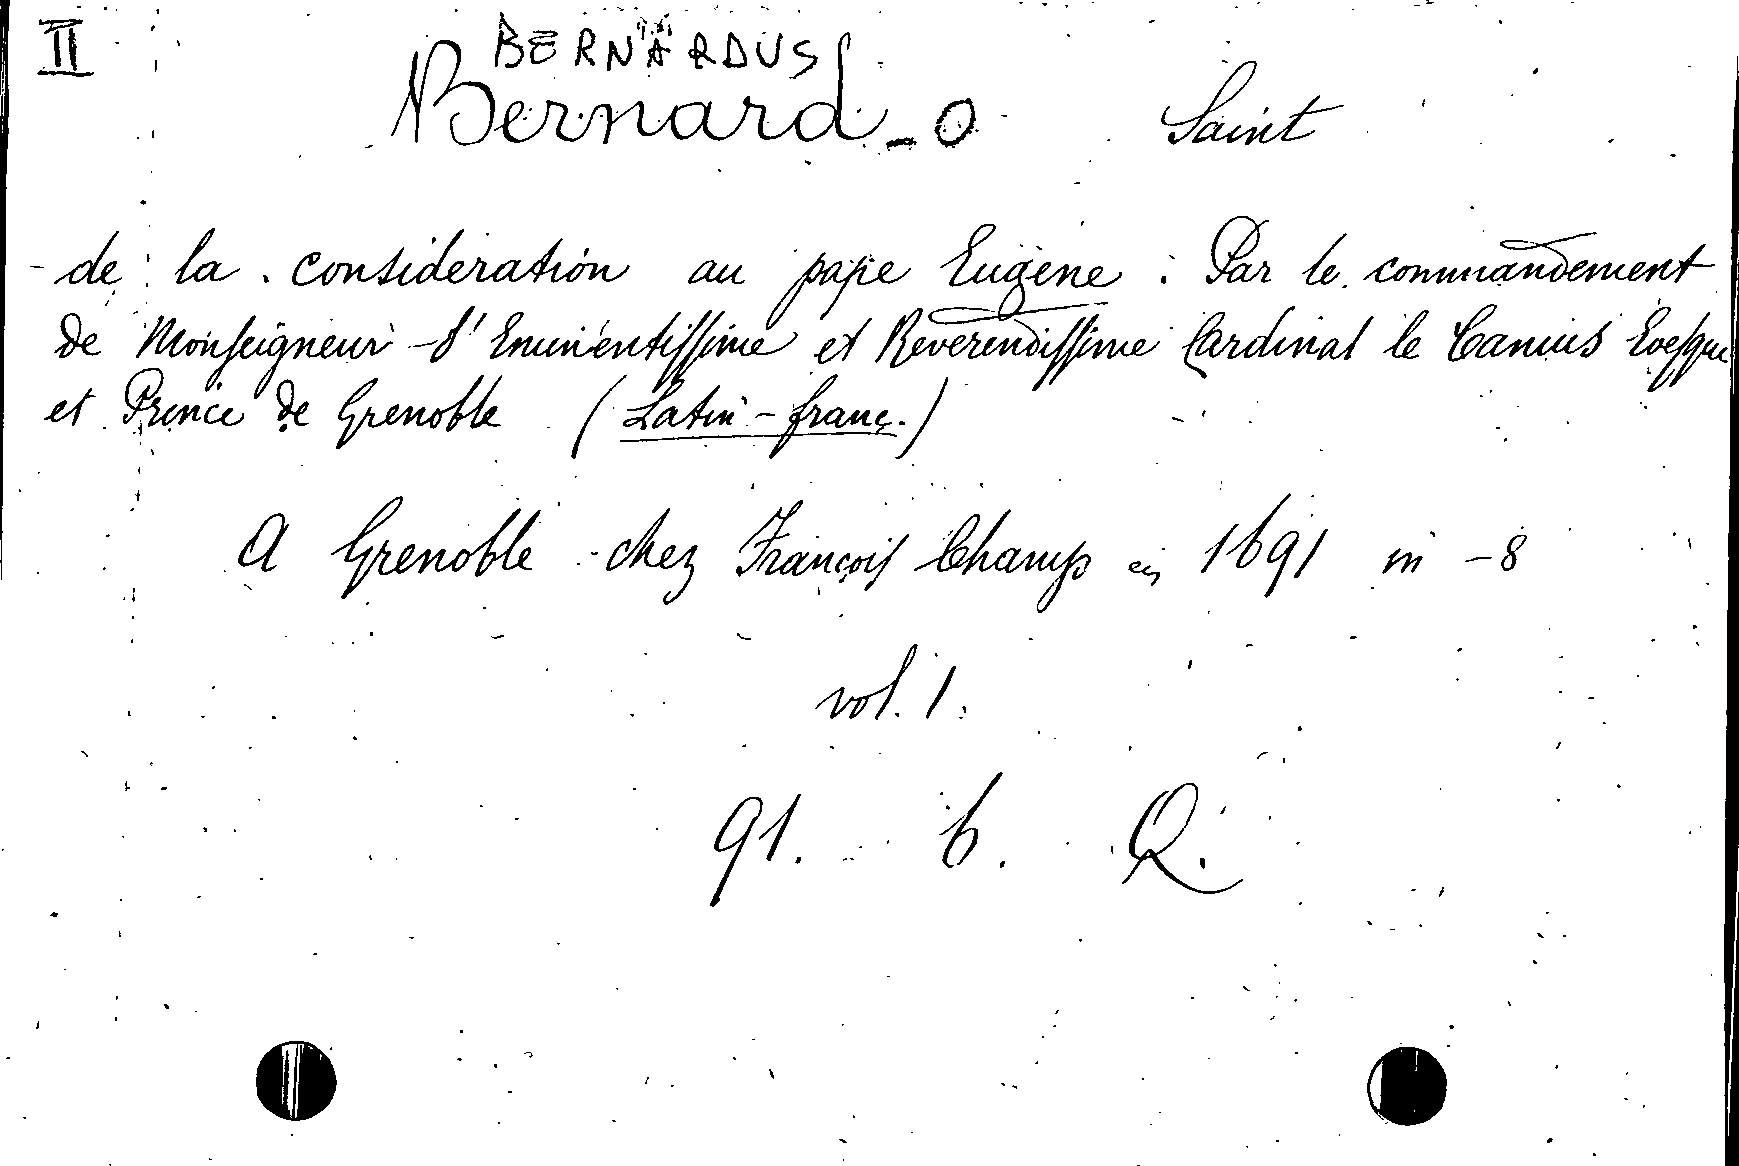 II
BERNARDUS
Bernard - o Saint
- de la consideration au pape Eugène : Par le commandement
de Monseigneur l'Eminentissime et Reverendissime Cardinal le Camus Evesque
et Prince de Grenoble (Latin - franç.)
A Grenoble chez François Champ en 1691 in - 8
vol. 1.
91. 6. Q.